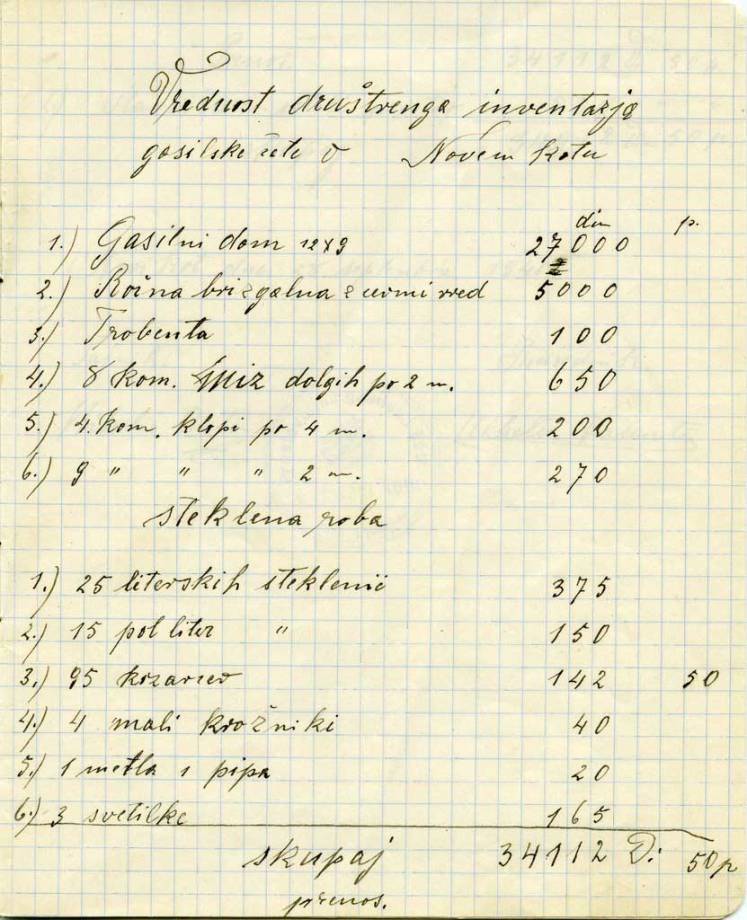 Vrednost društvenga inventarja
gasilske čete v Novem Kotu
din p.
1.) Gasilni dom 12x9 27000
2.) Ročna brizgalna z cevmi vred 5000
3.) Trobenta 100
4.) 8 kom. miz dolgih po 2 m. 650
5.) 4. kom. klopi po 4 m. 200
6.) 9 " " " 2 m. 270
steklena roba
1.) 25 literskih steklenic 375
2.) 15 pol liter " 150
3.) 95 kozarcev 142 50
4.) 4 mali krožniki 40
5.) 1 metla 1 pipa 20
6.) 3 svetilke 165
skupaj 34112 D: 50 p
prenos.